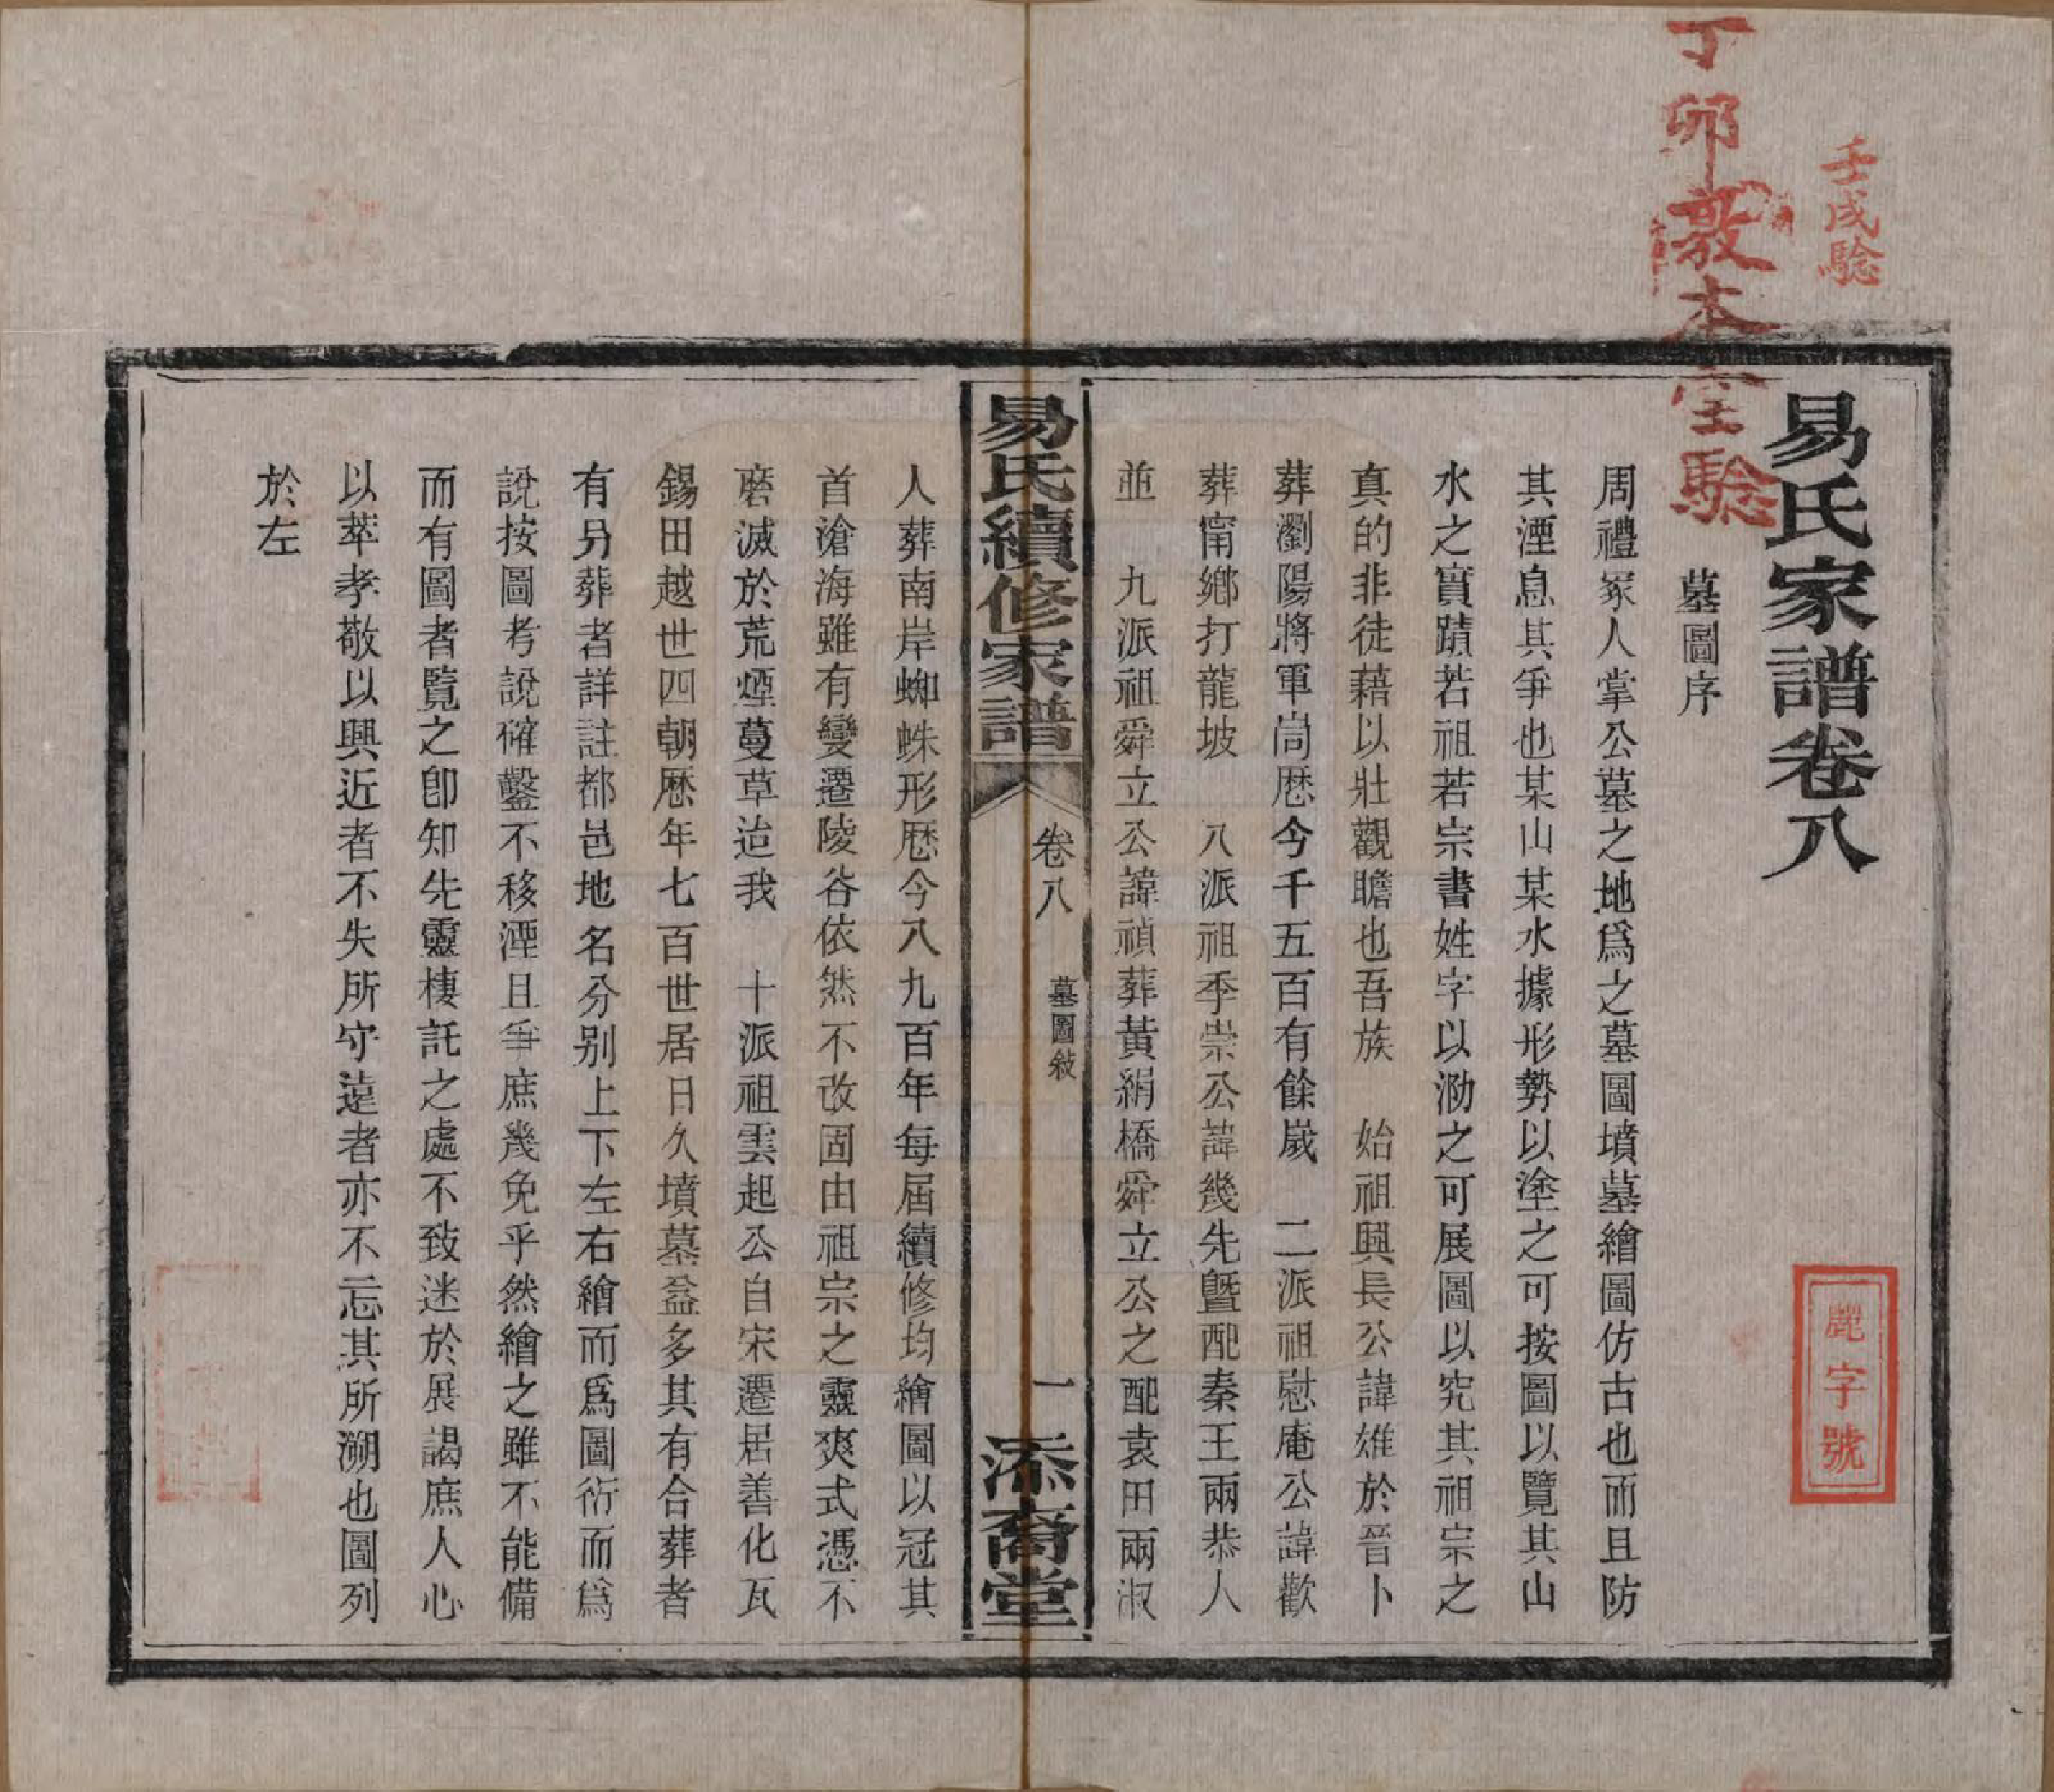 壬戌騐
丁卯敦本堂騐
易氏家譜卷八
麗字號
墓圖序
周禮冢人掌公墓之地爲之墓圖墳墓繪圖仿古也而且防
其湮息其爭也某山某水據形勢以塗之可按圖以覽其山
水之實蹟若祖若宗書姓字以泐之可展圖以究其祖宗之
真的非徒藉以壯觀瞻也吾族　始祖興長公諱雄於晉卜
葬瀏陽將軍崗歷今千五百有餘嵗　二派祖慰庵公諱歡
葬甯鄉打龍坡　八派祖季崇公諱幾先暨配秦王兩恭人
並　九派祖舜立公諱禎葬黃絹橋舜立公之配袁田兩淑
易氏續修家譜　卷八　墓圖敍　一　添裔堂
人葬南岸蜘蛛形歷今八九百年每屆續修均繪圖以冠其
首滄海雖有變遷陵谷依然不改固由祖宗之靈爽式憑不
磨滅於荒煙蔓草迨我　十派祖雲起公自宋遷居善化瓦
錫田越世四朝歷年七百世居日久墳墓益多其有合葬者
有另葬者詳註都邑地名分别上下左右繪而爲圖衍而爲
說按圖考說確鑿不移湮且爭庶幾免乎然繪之雖不能備
而有圖者覽之卽知先靈棲託之處不致迷於展謁庶人心
以萃孝敬以興近者不失所守遠者亦不忘其所溯也圖列
於左